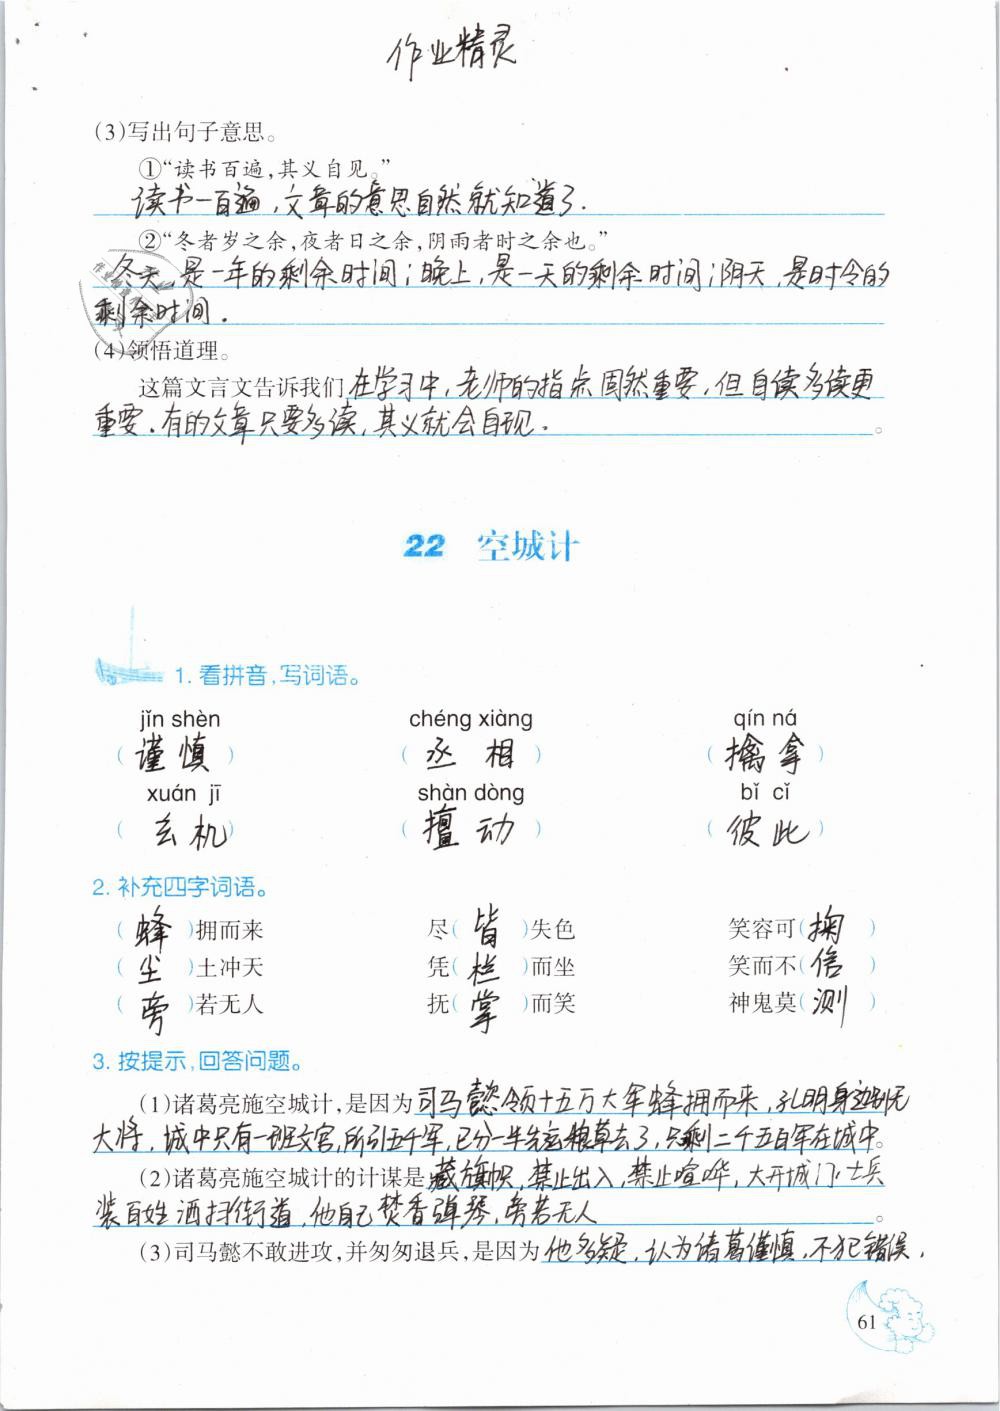 作业精灵
(3)写出句子意思。
①“读书百遍,其义自见。”
读书一百遍,文章的意思自然就知道了.
②“冬者岁之余,夜者日之余,阴雨者时之余也。”
冬天,是一年的剩余时间;晚上,是一天的剩余时间;阴天,是时令的
剩余时间.
(4)领悟道理。
这篇文言文告诉我们在学习中,老师的指点固然重要,但自读多读更
重要.有的文章只要多读,其义就会自现. 。
22 空城计
1. 看拼音,写词语。
jǐn shèn chéng xiàng qín ná
(谨慎) (丞相) (擒拿)
xuán jī shàn dòng bǐ cǐ
(玄机) (擅动) (彼此)
2. 补充四字词语。
(蜂)拥而来 尽(皆)失色 笑容可(掬)
(尘)土冲天 凭(栏)而坐 笑而不(信)
(旁)若无人 抚(掌)而笑 神鬼莫(测)
3. 按提示,回答问题。
(1)诸葛亮施空城计,是因为司马懿领十五万大军蜂拥而来,孔明身边别无
大将,城中只有一班文官,所引五千军,已分一半先运粮草去了,只剩二千五百军在城中。
(2)诸葛亮施空城计的计谋是藏旗帜,禁止出入,禁止喧哗,大开城门,士兵
装百姓洒扫街道,他自己焚香弹琴,旁若无人 。
(3)司马懿不敢进攻,并匆匆退兵,是因为他多疑,认为诸葛谨慎,不犯错误,
61